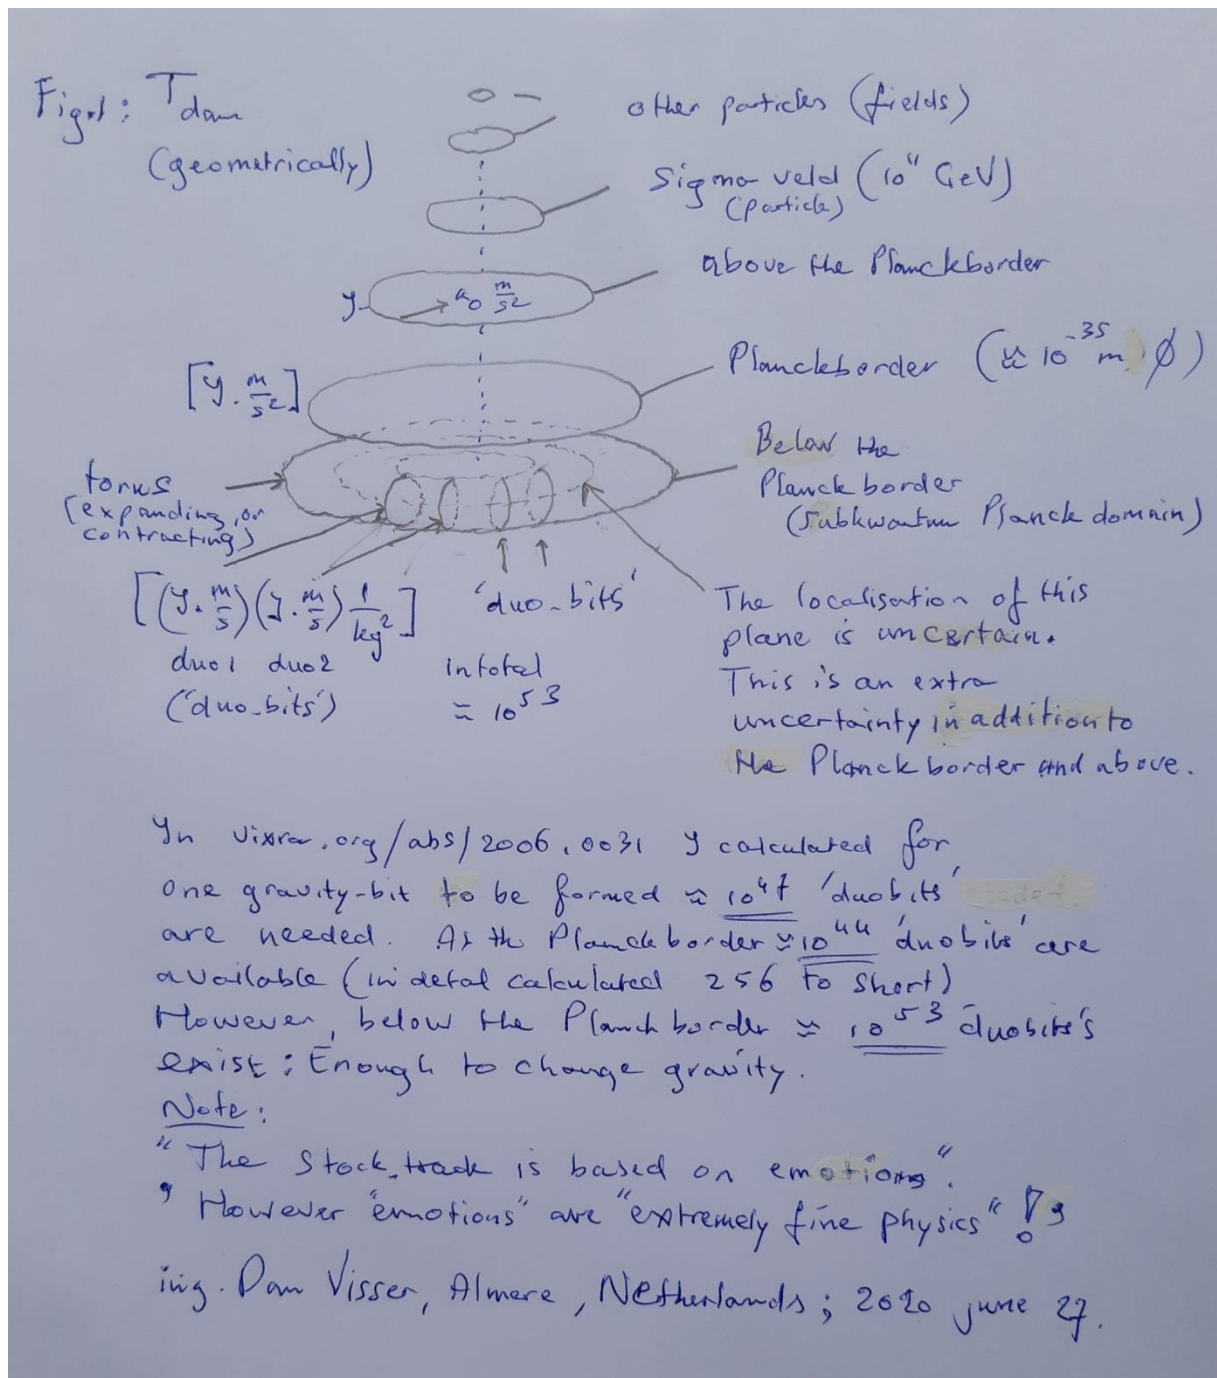 Fig.1: Tdam
(geometrically)
other particles (fields)
Sigma veld (10¹¹ GeV)
(particle)
above the Planckborder
y a₀ m/s²
[y. m/s²]
Planckborder (≈ 10⁻³⁵ m ∅)
Below the
Planckborder
(subkwantum Planck domain)
torus
[expanding or
contracting)
[(y. m/s)(y. m/s) 1/kg²]
duo1 duo2
('duo_bits')
'duo_bits'
in total
≈ 10⁵³
The localisation of this
plane is uncertain.
This is an extra
uncertainty in addition to
the Planckborder and above.
In vixra.org/abs/2006.0031 I calculated for
one gravity-bit to be formed ≈ 10⁴⁷ 'duobits'
are needed. At the Planckborder ≈ 10⁴⁴ 'duobits' are
available (in detail calculated 256 to short)
However, below the Planckborder ≈ 10⁵³ duobits's
exist: Enough to change gravity.
Note:
"The Stock_track is based on emotions".
" However "emotions" are "extremely fine physics" !"
ing. Dan Visser, Almere, Netherlands; 2020 june 27.